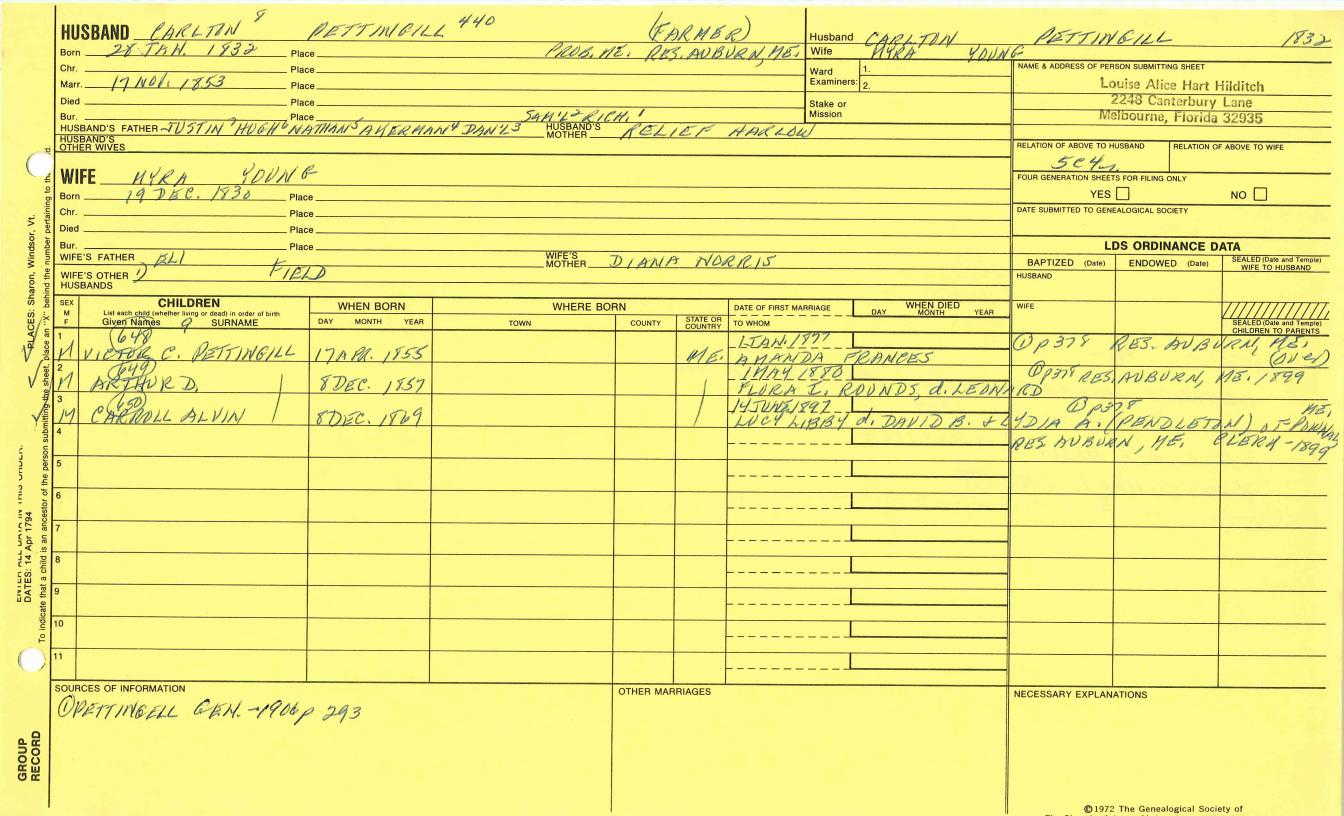 HUSBAND CARLTON 8 PETTINGILL 440 (FARMER)
Born 28 JAN. 1832 Place PROB. ME. RES. AUBURN, ME.
Chr. Place
Marr. 17 NOV. 1853 Place
Died Place
Bur. Place SAM'L 2 RICH. 1
HUSBAND'S FATHER JUSTIN 7 HUGH 6 NATHAN 5 AKERMAN 4 DAN'L 3 HUSBAND'S MOTHER RELIEF HARLOW
HUSBAND'S OTHER WIVES
Husband CARLTON PETTINGILL 1832
Wife MYRA YOUNG
Ward Examiners: 1.
2.
Stake or Mission
NAME & ADDRESS OF PERSON SUBMITTING SHEET
Louise Alice Hart Hilditch
2248 Canterbury Lane
Melbourne, Florida 32935
RELATION OF ABOVE TO HUSBAND RELATION OF ABOVE TO WIFE
5C4r
FOUR GENERATION SHEETS FOR FILING ONLY
YES NO
DATE SUBMITTED TO GENEALOGICAL SOCIETY
WIFE MYRA YOUNG
Born 19 DEC. 1830 Place
Chr. Place
Died Place
Bur. Place
WIFE'S FATHER ELI WIFE'S MOTHER DIANA NORRIS
WIFE'S OTHER HUSBANDS 1) FIELD
LDS ORDINANCE DATA
BAPTIZED (Date) ENDOWED (Date) SEALED (Date and Temple) WIFE TO HUSBAND
HUSBAND
WIFE
SEALED (Date and Temple) CHILDREN TO PARENTS
SEX M F CHILDREN
List each child (whether living or dead) in order of birth
Given Names 9 SURNAME
WHEN BORN
DAY MONTH YEAR
WHERE BORN
TOWN COUNTY STATE OR COUNTRY
DATE OF FIRST MARRIAGE
TO WHOM
WHEN DIED
DAY MONTH YEAR
1 (648) 1 JAN. 1877 ① p378 RES. AUBURN, ME.
M VICTOR C. PETTINGILL 17 APR. 1855 ME. AMANDA FRANCES (over)
2 (649) 1 MAY 1880 ① p378 RES. AUBURN, ME. 1899
M ARTHUR D. 8 DEC. 1857 FLORA I. ROUNDS, d. LEONARD
3 (650) 14 JUNE 1897 ① p378 ME.
M CARROLL ALVIN 8 DEC. 1869 LUCY LIBBY d. DAVID B. + LYDIA A. (PENDLETON) OF POWNAL
4 RES AUBURN, ME. CLERK - 1899
5
6
7
8
9
10
11
SOURCES OF INFORMATION
① PETTINGELL GEN. - 1906 p 293
OTHER MARRIAGES
NECESSARY EXPLANATIONS
©1972 The Genealogical Society of
PLACES: Sharon, Windsor, Vt.
ENTER ALL DATA IN THIS ORDER:
DATES: 14 Apr 1794
To indicate that a child is an ancestor of the person submitting the sheet, place an "X" behind the number pertaining to
GROUP RECORD